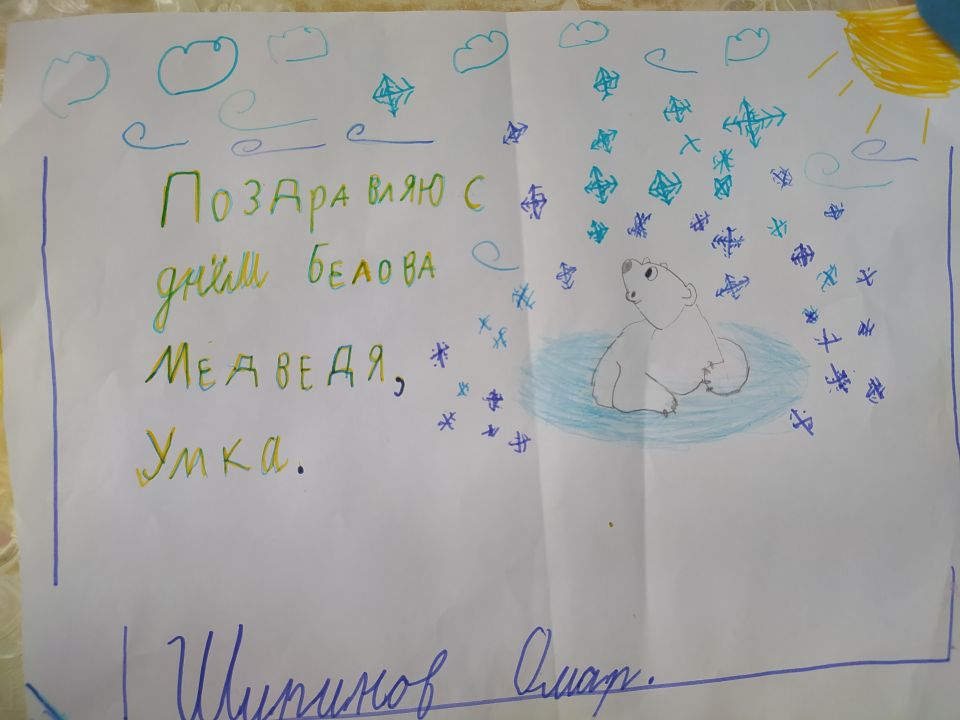 Поздравляю с
днём белова
медведя,
Умка.
Ширинов Омар.